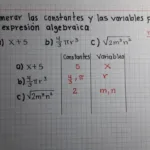 merar las constantes y las variables p
expresión algebraica
) x + 5 b) 4/3 πr³ c) √2m³n⁴
Constantes Variables
a) x + 5 5 x
b) 4/3 πr³ r
c) √2m³n⁴ 2 m, n